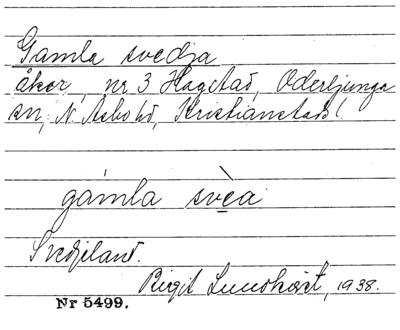 Gamla svedja
åker, nr 3 Hagstad, Oderljunga
sn, N. Åsbo hd, Kristianstads l
gámla svèa
Svedjeland.
Birgit Lundkvist, 1938.
Nr 5499.